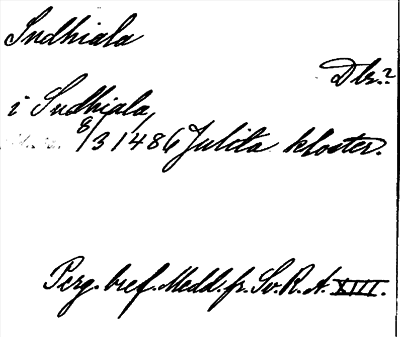 Sudhiala
Dlr.?
i Sudhiala,
8/3 1486 Julita kloster.
Perg. bref. Medd. fr. Sv. R. A. XIII.